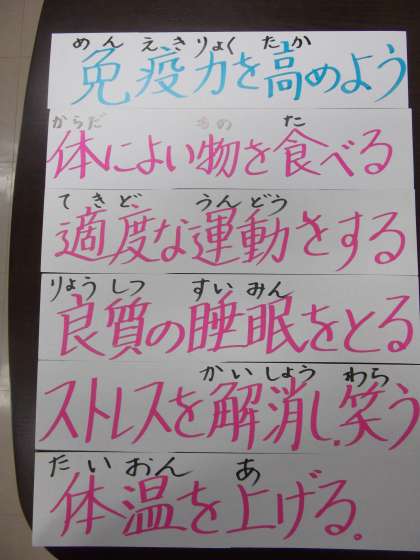 めんえきりょく たか
免疫力を高めよう
からだ もの た
体によい物を食べる
てきど うんどう
適度な運動をする
りょうしつ すいみん
良質の睡眠をとる
かいしょう わら
ストレスを解消し、笑う
たいおん あ
体温を上げる。